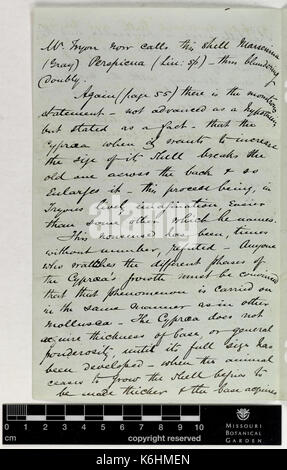 Mr. Tryon now calls this Shell Marsenina
(Gray) Perspicua (Lin: sp) - thus blundering
doubly.
Again (page 55) there is the monstrous
statement - not advanced as a hypothesis
but stated as a fact - that the
Cypræa when it wants to increase
the size of its Shell breaks the
old one across the back & so
Enlarges it - this process being, in
Tryons lively imagination, Easier
than some other which he names.
This nonsense has been, times
without number, refuted - Anyone
who watches the different phases of
the Cypræa's growth must be convinced
that that phenomenon is carried on
in the same manner as in other
mollusca - The Cypræa does not
acquire thickness of base, or general
ponderosity, until its full size has
been developed - when the animal
ceases to grow the Shell begins to
be made thicker & the base acquires
0 1 2 3 4 5 6 7 8 9 10
cm
copyright reserved
MISSOURI
BOTANICAL
GARDEN
alamy
Image ID: K6HMEN
www.alamy.com